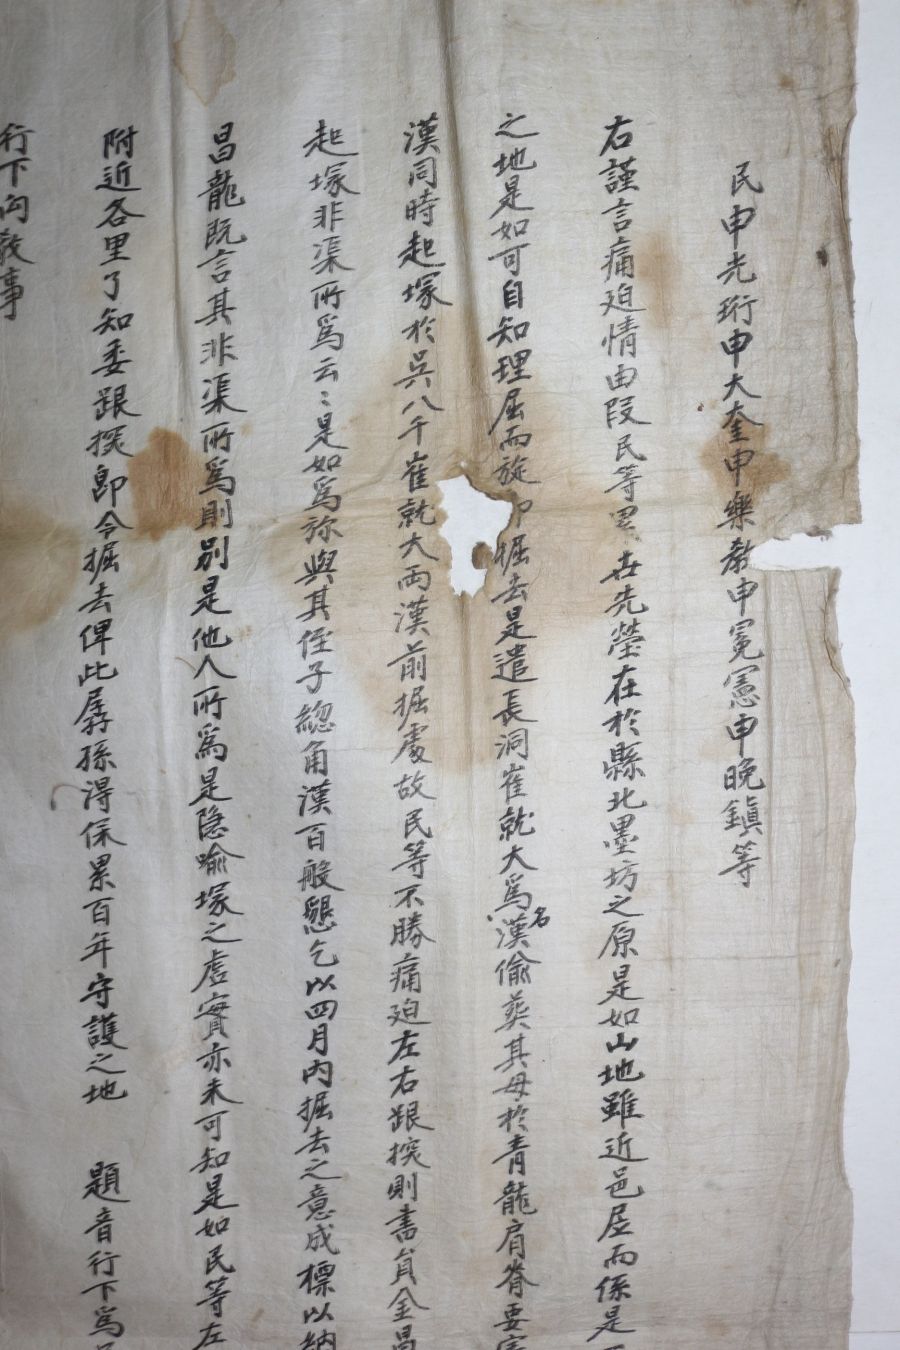 民申光珩申大奎申樂教申冕憲申晚鎭等
右謹言痛迫情由段民等累世先塋在於縣北墨坊之原是如山地雖近邑居而係是
之地是如可自知理屈而旋即掘去是遣長洞崔就大爲名漢偸葬其母於靑龍肩脊要害
漢同時起塚於吳八千崔就大兩漢前掘處故民等不勝痛迫左右跟探則書員金昌
起塚非渠所爲云〻是如爲旀與其侄子總角漢百般懇乞以四月內掘去之意成標以納
昌龍旣言其非渠所爲則別是他人所爲是隐喩塚之虛實亦未可知是如民等左
附近各里了知委跟探卽令掘去俾此孱孫得保累百年守護之地 題音行下爲
行下向敎事